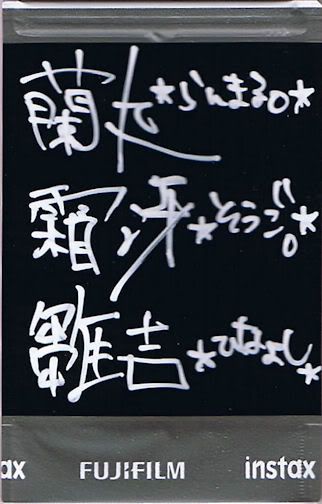 蘭丸 ☆らんまる。☆
霜冴 ☆そうご。☆
雛吉 ☆ひなよし☆
ax FUJIFILM instax